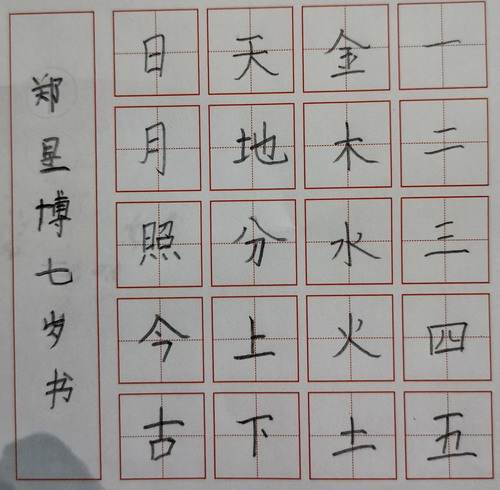 一二三四五
金木水火土
天地分上下
日月照今古
郑星博七岁书